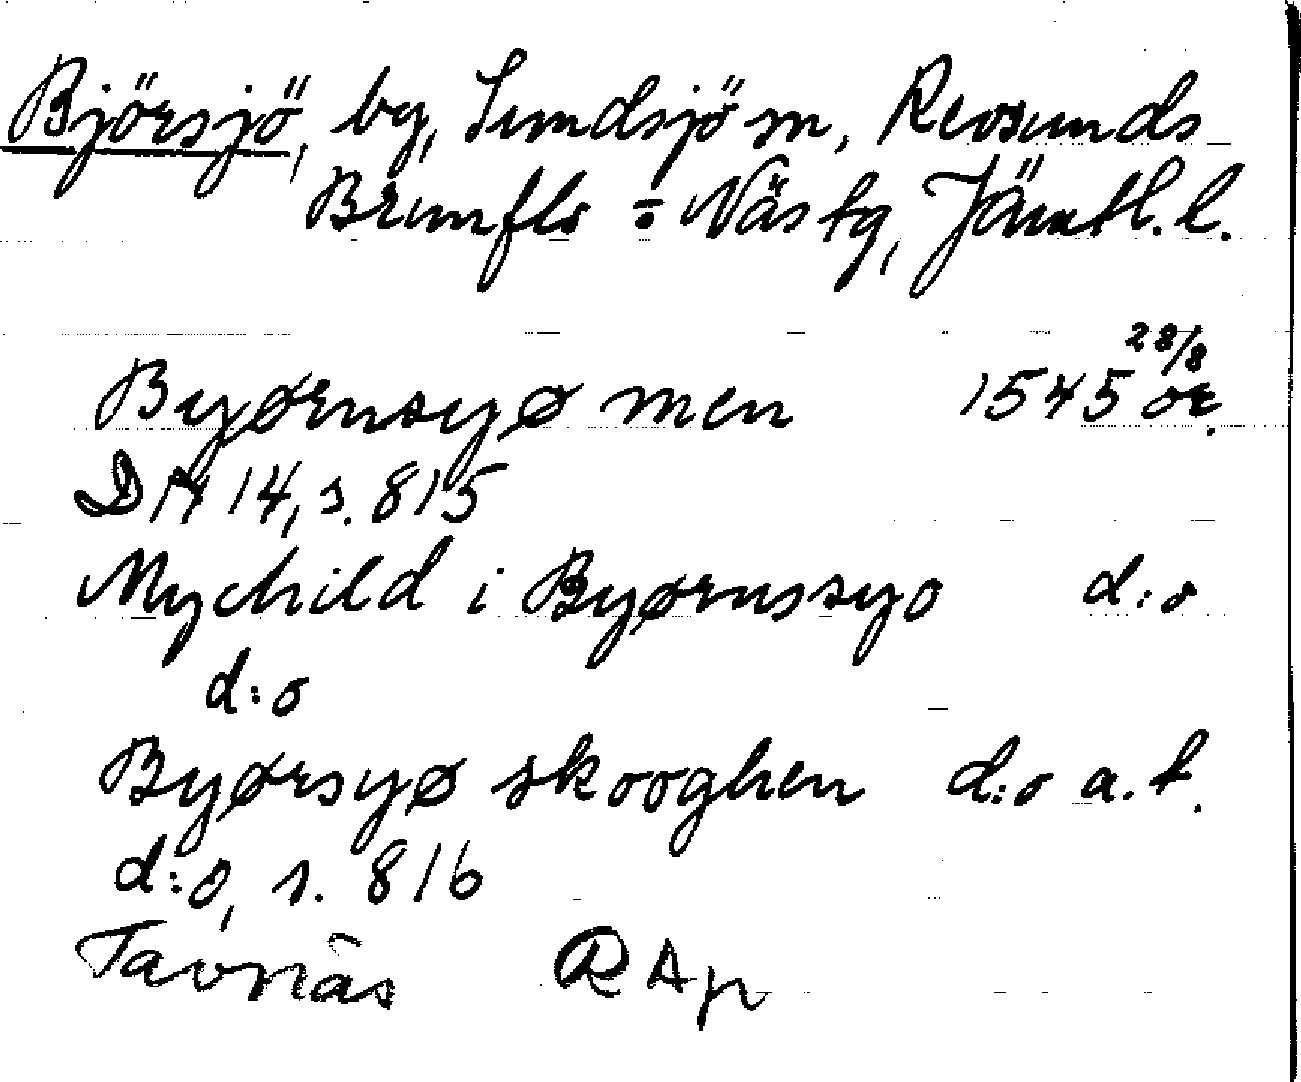 Björsjö, by, Sundsjö sn, Revsunds
Brunflo ÷ Näs tg, Jämtl. l.
Byørnsyø men 1545 28/8 or.
DN 14, s. 815
Mychild i Byørnssyo d:o
d:o
Byørsyø skooghen d:o a.t.
d:o, s. 816
Tavnäs RAp